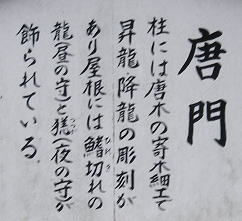 唐門
柱には唐木の寄木細工で
昇龍降龍の彫刻が
あり屋根には鰭切れの
龍(昼の守)と恙(夜の守)が
飾られている